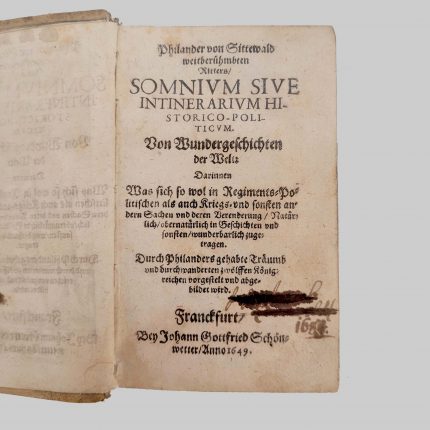 Philander von Sittewald
weitberühmbten
Ritters/
SOMNIVM SIVE
INTINERARIVM HI-
STORICO-POLI-
TICVM.
Von Wundergeschichten
der Welt:
Darinnen
Was sich so wol in Regiments-Po-
litischen als auch Kriegs- vnd sonsten an-
dern Sachen vnd deren Verenderung / Natür-
lich / obernatürlich in Geschichten vnd
sonsten / wunderbarlich zuge-
tragen.
Durch Philanders gehabte Träumb
vnd durchwanderten zwölffen König-
reichen vorgestelt vnd abge-
bildet wird.
Franckfurt /
Bey Johann Gottfried Schön-
wetter / Anno 1649.